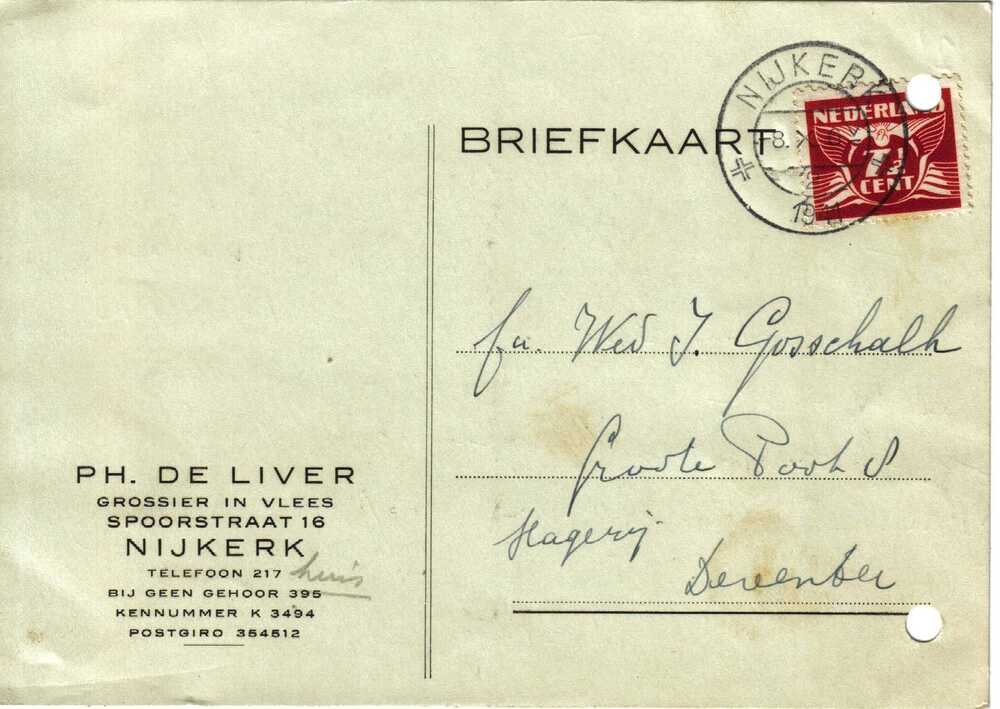 BRIEFKAART
NIJKERK
8.X
19
NEDERLAND
7½
CENT
fa. Wed J. Gosschalk
Groote Poot 8
Slagerij
Deventer
PH. DE LIVER
GROSSIER IN VLEES
SPOORSTRAAT 16
NIJKERK
TELEFOON 217 huis
BIJ GEEN GEHOOR 395
KENNUMMER K 3494
POSTGIRO 354512